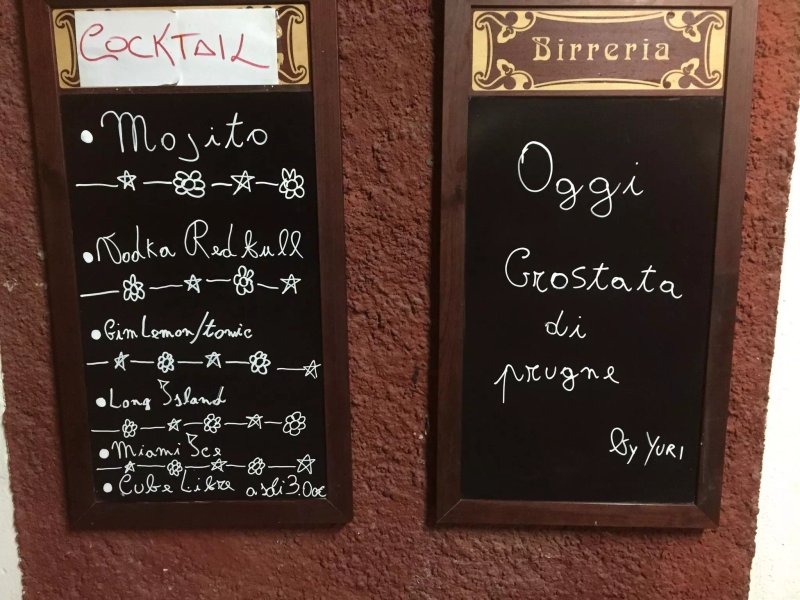 COCKTAIL
• Mojito
• Vodka Red bull
• Gin Lemon/tonic
• Long Island
• Miami Ice
• Cube Libre a soli 3.00€
Birreria
Oggi
Crostata
di
prugne
by YURI